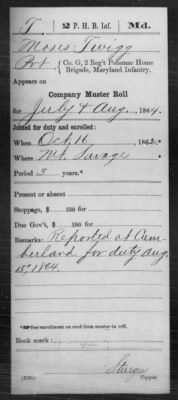 T. 2 P. H. B. Inf. Md.
Moses Twigg
Pvt., Co. G, 2 Reg't Potomac Home
Brigade, Maryland Infantry.
Appears on
Company Muster Roll
for July & Aug., 1864.
Joined for duty and enrolled:
When Oct. 16, 1862.
Where Mt. Savage
Period 3 years.*
Present or absent
Stoppage, $ 100 for
Due Gov't, $ 100 for
Remarks: Reported at Cum-
berland for duty Aug.
15", 1864.
*See enrollment on card from muster-in roll.
Book mark:
Copyist.